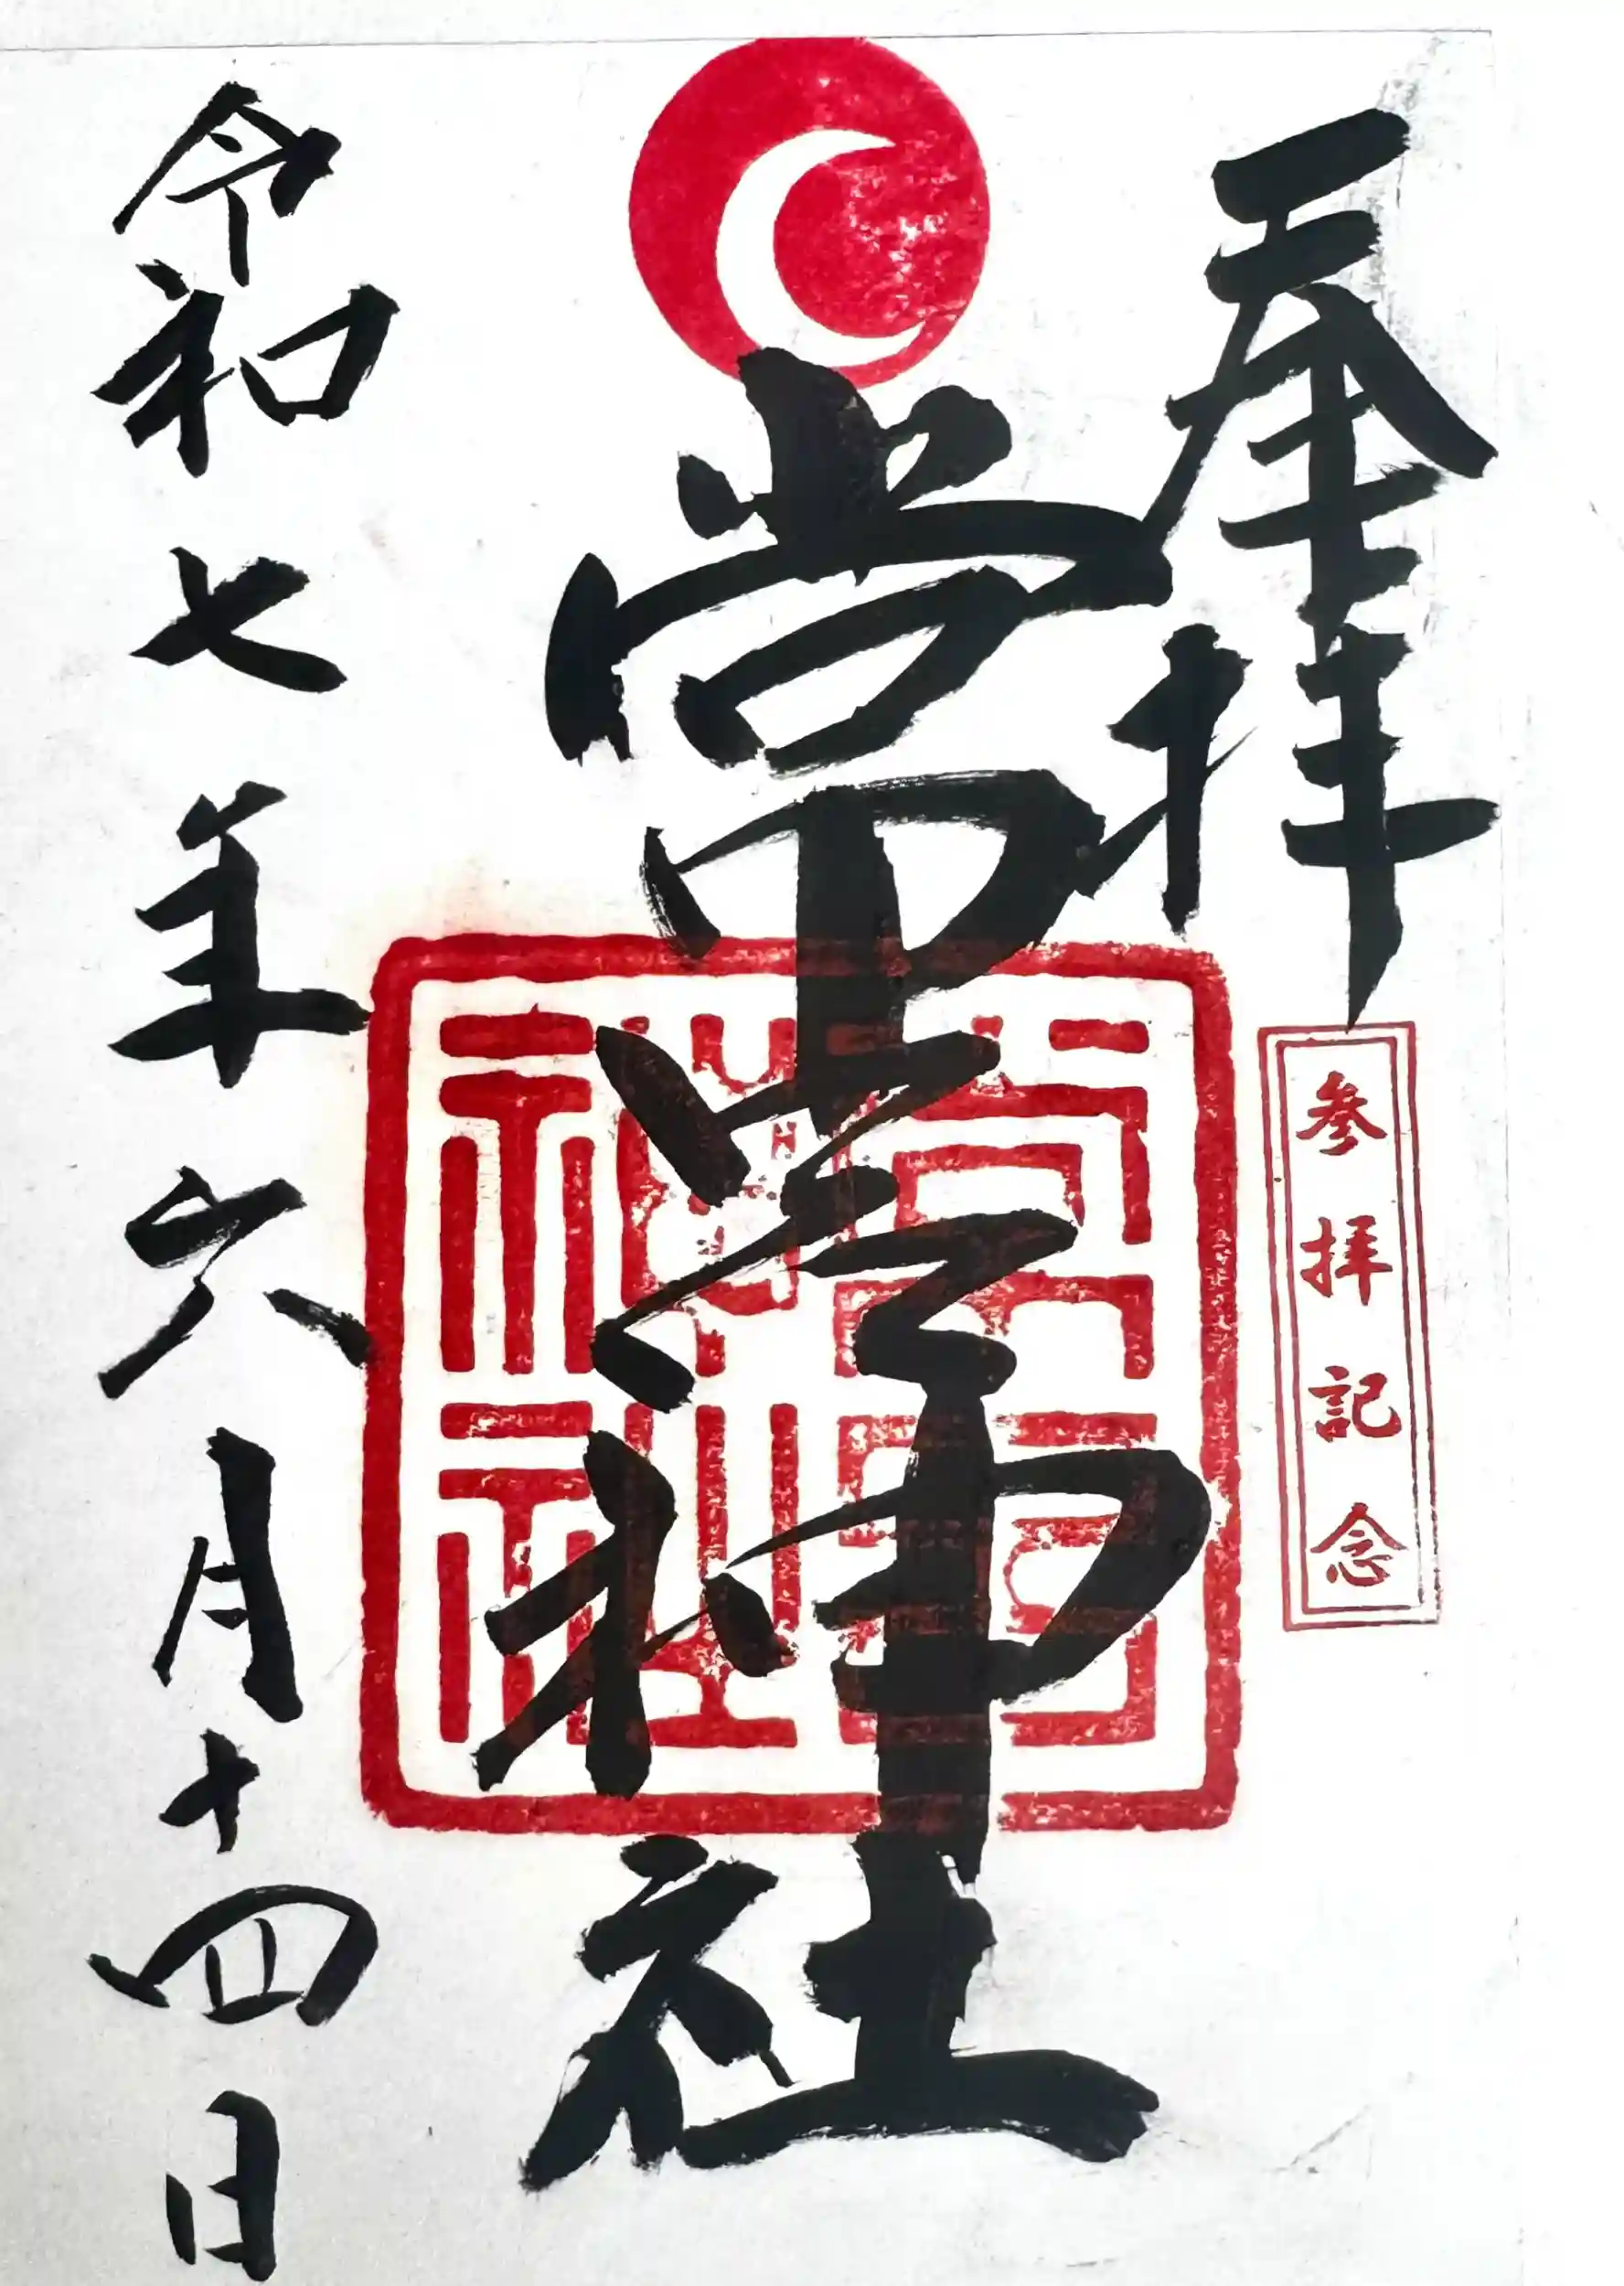 奉拝
参拝記念
常宮神社
令和七年六月十四日